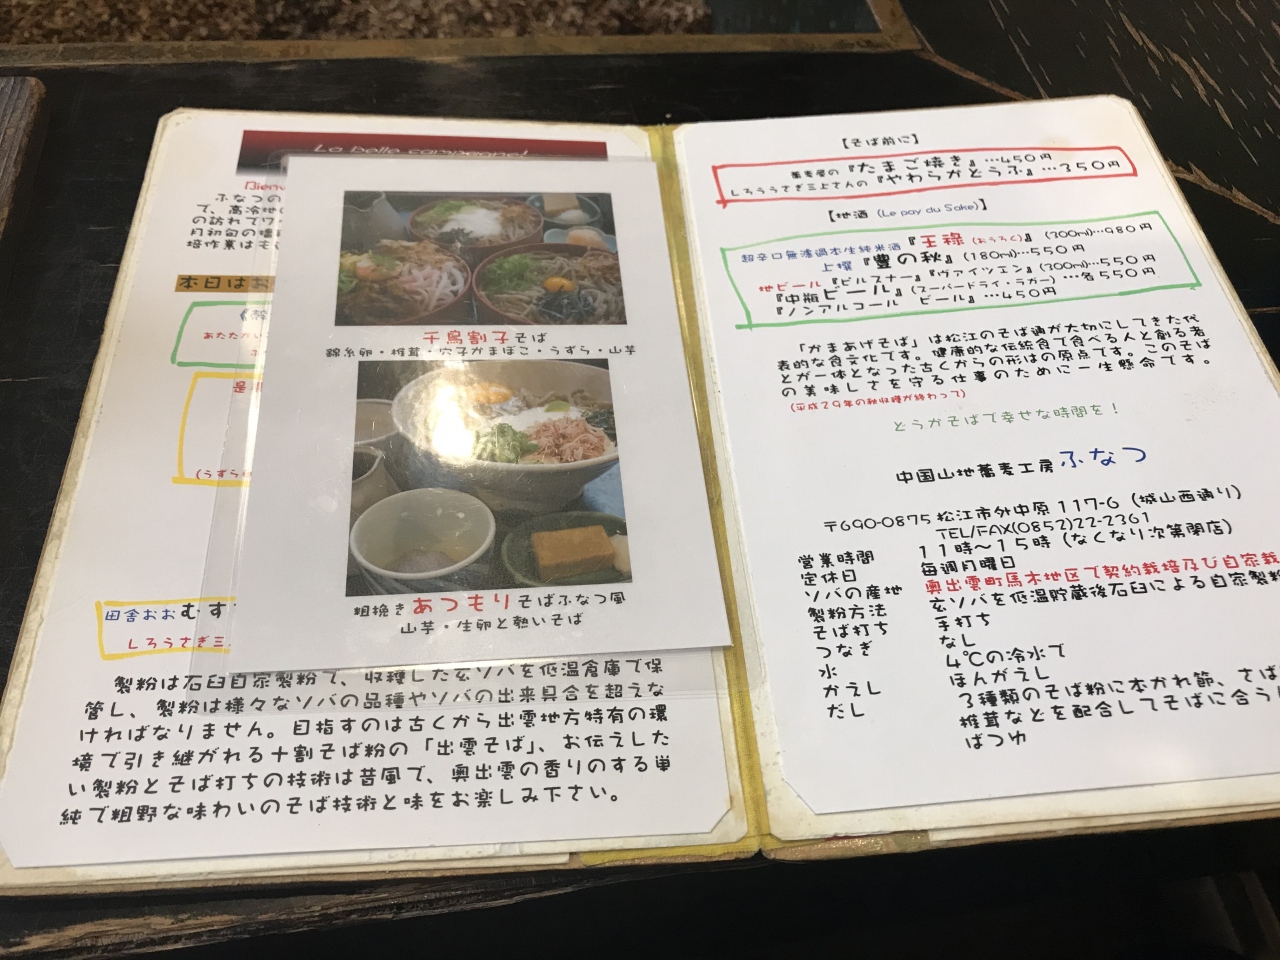 La belle campagne!
Bienv
ふなつの
で、高冷地の
の訪れでワ
月初旬の
培作業はも
本日はお
あたたかい
是非
(うずら
田舎おおむす
しろうさぎ三
千鳥割子そば
錦糸卵・椎茸・穴子かまぼこ・うずら・山芋
粗挽きあつもりそばふなつ風
山芋・生卵と熱いそば
製粉は石臼自家製粉で、収穫した玄ソバを低温倉庫で保
管し、製粉は様々なソバの品種やソバの出来具合を超えな
ければなりません。目指すのは古くから出雲地方特有の環
境で引き継がれる十割そば粉の「出雲そば」、お伝えした
い製粉とそば打ちの技術は昔風で、奥出雲の香りのする単
純で粗野な味わいのそば技術と味をお楽しみ下さい。
【そば前に】
蕎麦屋の『たまご焼き』…450円
しろううさぎ三上さんの『やわらかとうふ』…350円
【地酒 (Le pay du Sake)】
超辛口無濾過本生純米酒『王祿(おうろく)』(300ml)…980円
上撰『豊の秋』(180ml)…550円
地ビール『ピルスナー』『ヴァイツェン』(300ml)…550円
『中瓶ビール』(スーパードライ・ラガー)…各550円
『ノンアルコール ビール』…450円
「かまあげそば」は松江のそば通が大切にしてきた代
表的な食文化です。健康的な伝統食で食べる人と創る者
とが一体となった古くからの形はの原点です。このそば
の美味しさを守る仕事のために一生懸命です。
(平成29年の秋収穫が終わって)
どうかそばで幸せな時間を！
中国山地蕎麦工房ふなつ
〒690-0875 松江市外中原117-6 (城山西通り)
TEL/FAX(0852)22-2361
営業時間 11時～15時 (なくなり次第閉店)
定休日 毎週月曜日
ソバの産地 奥出雲町馬木地区で契約栽培及び自家栽
製粉方法 玄ソバを低温貯蔵後石臼による自家製粉
そば打ち 手打ち
つなぎ なし
水 4℃の冷水で
かえし ほんがえし
だし 3種類のそば粉に本かれ節、さば
椎茸などを配合してそばに合う
ばつゆ